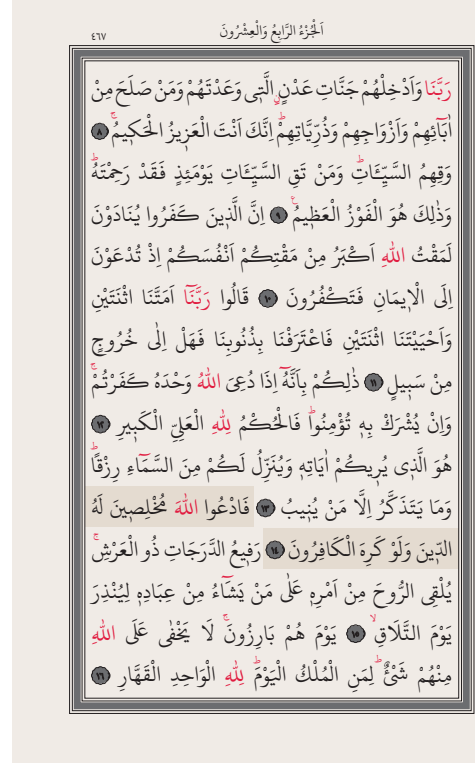 اَلْجُزْءُ الرَّابِعُ وَالْعِشْرُونَ
٤٦٧
رَبَّنَا وَاَدْخِلْهُمْ جَنَّاتِ عَدْنٍۨ الَّتٖى وَعَدْتَهُمْ وَمَنْ صَلَحَ مِنْ
اٰبَٓائِهِمْ وَاَزْوَاجِهِمْ وَذُرِّيَّاتِهِمْؕ اِنَّكَ اَنْتَ الْعَزٖيزُ الْحَكٖيمُۙ ﴿٨﴾
وَقِهِمُ السَّيِّـَٔاتِؕ وَمَنْ تَقِ السَّيِّـَٔاتِ يَوْمَئِذٍ فَقَدْ رَحِمْتَهُؕ
وَذٰلِكَ هُوَ الْفَوْزُ الْعَظٖيمُࣖ ﴿٩﴾ اِنَّ الَّذٖينَ كَفَرُوا يُنَادَوْنَ
لَمَقْتُ اللّٰهِ اَكْبَرُ مِنْ مَقْتِكُمْ اَنْفُسَكُمْ اِذْ تُدْعَوْنَ
اِلَى الْاٖيمَانِ فَتَكْفُرُونَ ﴿١٠﴾ قَالُوا رَبَّنَٓا اَمَتَّنَا اثْنَتَيْنِ
وَاَحْيَيْتَنَا اثْنَتَيْنِ فَاعْتَرَفْنَا بِذُنُوبِنَا فَهَلْ اِلٰى خُرُوجٍ
مِنْ سَبٖيلٍ ﴿١١﴾ ذٰلِكُمْ بِاَنَّهُٓ اِذَا دُعِىَ اللّٰهُ وَحْدَهُ كَفَرْتُمْۚ
وَاِنْ يُشْرَكْ بِهٖ تُؤْمِنُواؕ فَالْحُكْمُ لِلّٰهِ الْعَلِىِّ الْكَبٖيرِ ﴿١٢﴾
هُوَ الَّذٖى يُرٖيكُمْ اٰيَاتِهٖ وَيُنَزِّلُ لَكُمْ مِنَ السَّمَٓاءِ رِزْقًاؕ
وَمَا يَتَذَكَّرُ اِلَّا مَنْ يُنٖيبُ ﴿١٣﴾ فَادْعُوا اللّٰهَ مُخْلِصٖينَ لَهُ
الدّٖينَ وَلَوْ كَرِهَ الْكَافِرُونَ ﴿١٤﴾ رَفٖيعُ الدَّرَجَاتِ ذُو الْعَرْشِۚ
يُلْقِى الرُّوحَ مِنْ اَمْرِهٖ عَلٰى مَنْ يَشَٓاءُ مِنْ عِبَادِهٖ لِيُنْذِرَ
يَوْمَ التَّلَاقِۙ ﴿١٥﴾ يَوْمَ هُمْ بَارِزُونَۚ لَا يَخْفٰى عَلَى اللّٰهِ
مِنْهُمْ شَىْءٌؕ لِمَنِ الْمُلْكُ الْيَوْمَؕ لِلّٰهِ الْوَاحِدِ الْقَهَّارِ ﴿١٦﴾